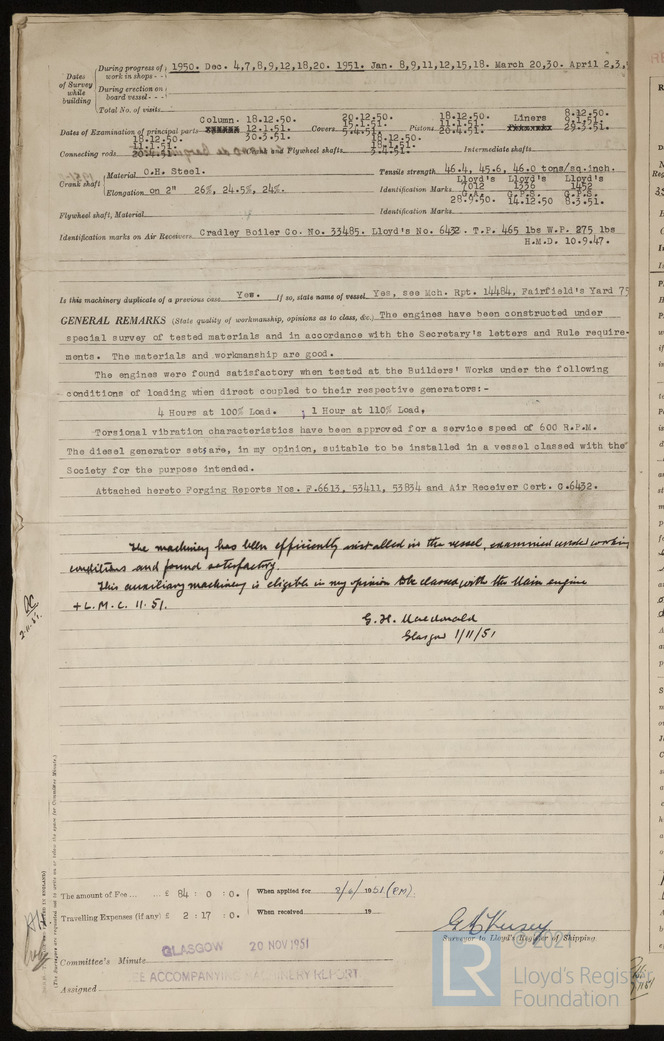 During progress of work in shops - - 1950. Dec. 4,7,8,9,12,18,20. 1951. Jan. 8,9,11,12,15,18. March 20,30. April 2,3.
Dates of Survey while building
During erection on board vessel - - -
Total No. of visits
Dates of Examination of principal parts Column. 18.12.50. 12.1.51. 30.3.51. Covers 20.12.50. 15.1.51. 5.4.51. Pistons 18.12.50. 11.1.51. 20.4.51. Liners 8.12.50. 9.1.51. 29.3.51.
Connecting rods 18.12.50. 11.1.51. 20.4.51. and Flywheel shafts 18.12.50. 18.1.51. 3.4.51. Intermediate shafts
Crank shaft Material O.H. Steel. Tensile strength 46.4, 45.6, 46.0 tons/sq.inch.
Elongation on 2" 26%, 24.5%, 24%. Identification Marks Lloyd's 7012 G.A. 28.9.50 Lloyd's 1336 G.P.S. 14.12.50 Lloyd's 1452 G.P.S. 8.3.51.
Flywheel shaft, Material Identification Marks
Identification marks on Air Receivers Cradley Boiler Co. No. 33485. Lloyd's No. 6432. T.P. 465 lbs W.P. 275 lbs
H.M.D. 10.9.47.
Is this machinery duplicate of a previous case Yes. If so, state name of vessel Yes, see Mch. Rpt. 14484, Fairfield's Yard 75
GENERAL REMARKS (State quality of workmanship, opinions as to class, &c.) The engines have been constructed under
special survey of tested materials and in accordance with the Secretary's letters and Rule require-
ments. The materials and workmanship are good.
The engines were found satisfactory when tested at the Builders' Works under the following
conditions of loading when direct coupled to their respective generators:-
4 Hours at 100% Load. ; 1 Hour at 110% Load.
Torsional vibration characteristics have been approved for a service speed of 600 R.P.M.
The diesel generator sets are, in my opinion, suitable to be installed in a vessel classed with the
Society for the purpose intended.
Attached hereto Forging Reports Nos. F.6613, 53411, 53834 and Air Receiver Cert. C.6432.
The machinery has been efficiently installed in the vessel, examined under working
conditions and found satisfactory
This auxiliary machinery is eligible in my opinion to be classed with the Main engine
+ L.M.C. 11.51.
G. H. Macdonald
Glasgow 1/11/51
The amount of Fee ... £ 84 : 0 : 0. When applied for 2/6/1951 (PM).
Travelling Expenses (if any) £ 2 : 17 : 0. When received 19
Surveyor to Lloyd's Register of Shipping
GLASGOW 20 NOV 1951
Committee's Minute
SEE ACCOMPANYING MACHINERY REPORT
Assigned
© 2021
LR
Lloyd's Register
Foundation